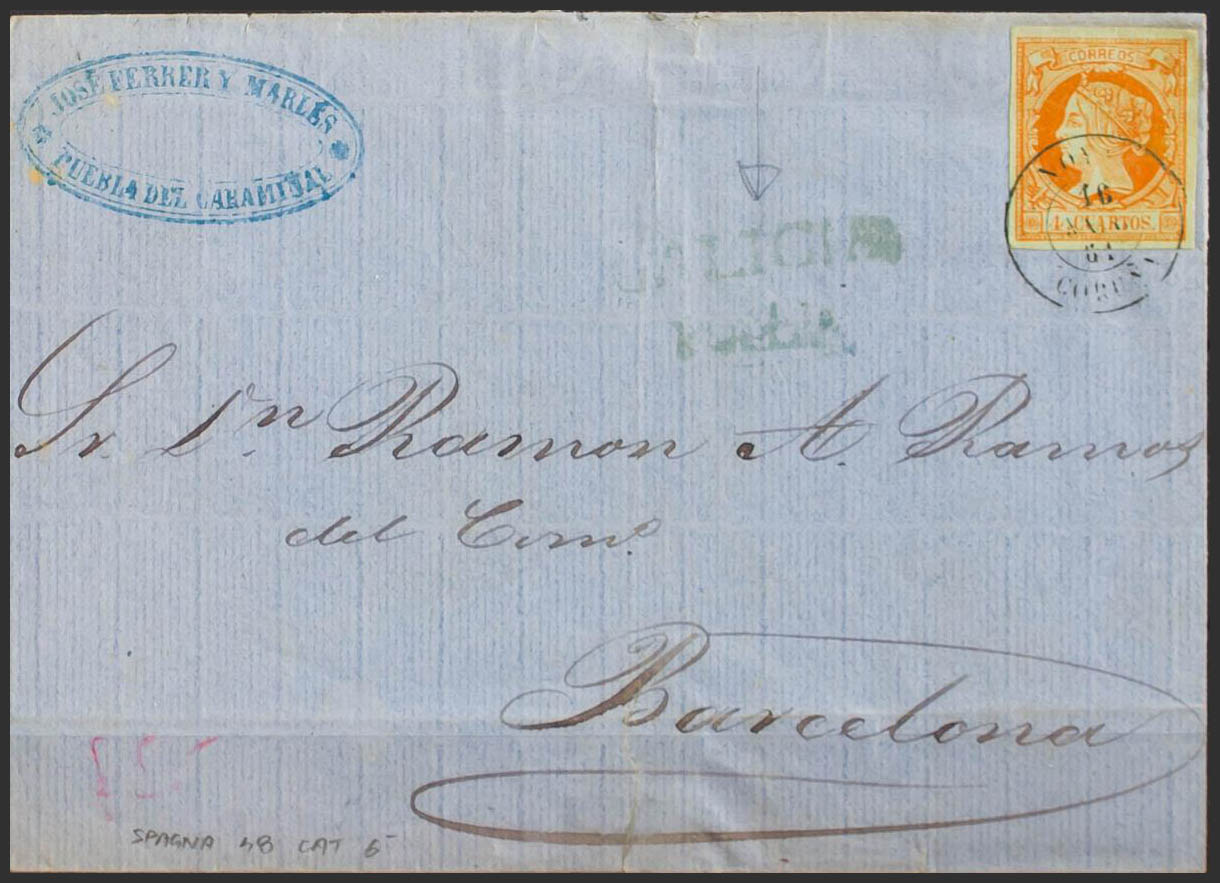 JOSÉ FERRER Y MARLÉS
PUEBLA DEL CARAMIÑAL
CORREOS
4 CUARTOS.
NOYA
16
61
CORUÑA
GALICIA
Puebla
Sr. Dn. Ramon A. Ramos
del Como.
Barcelona
SPAGNA 48 CAT 6-